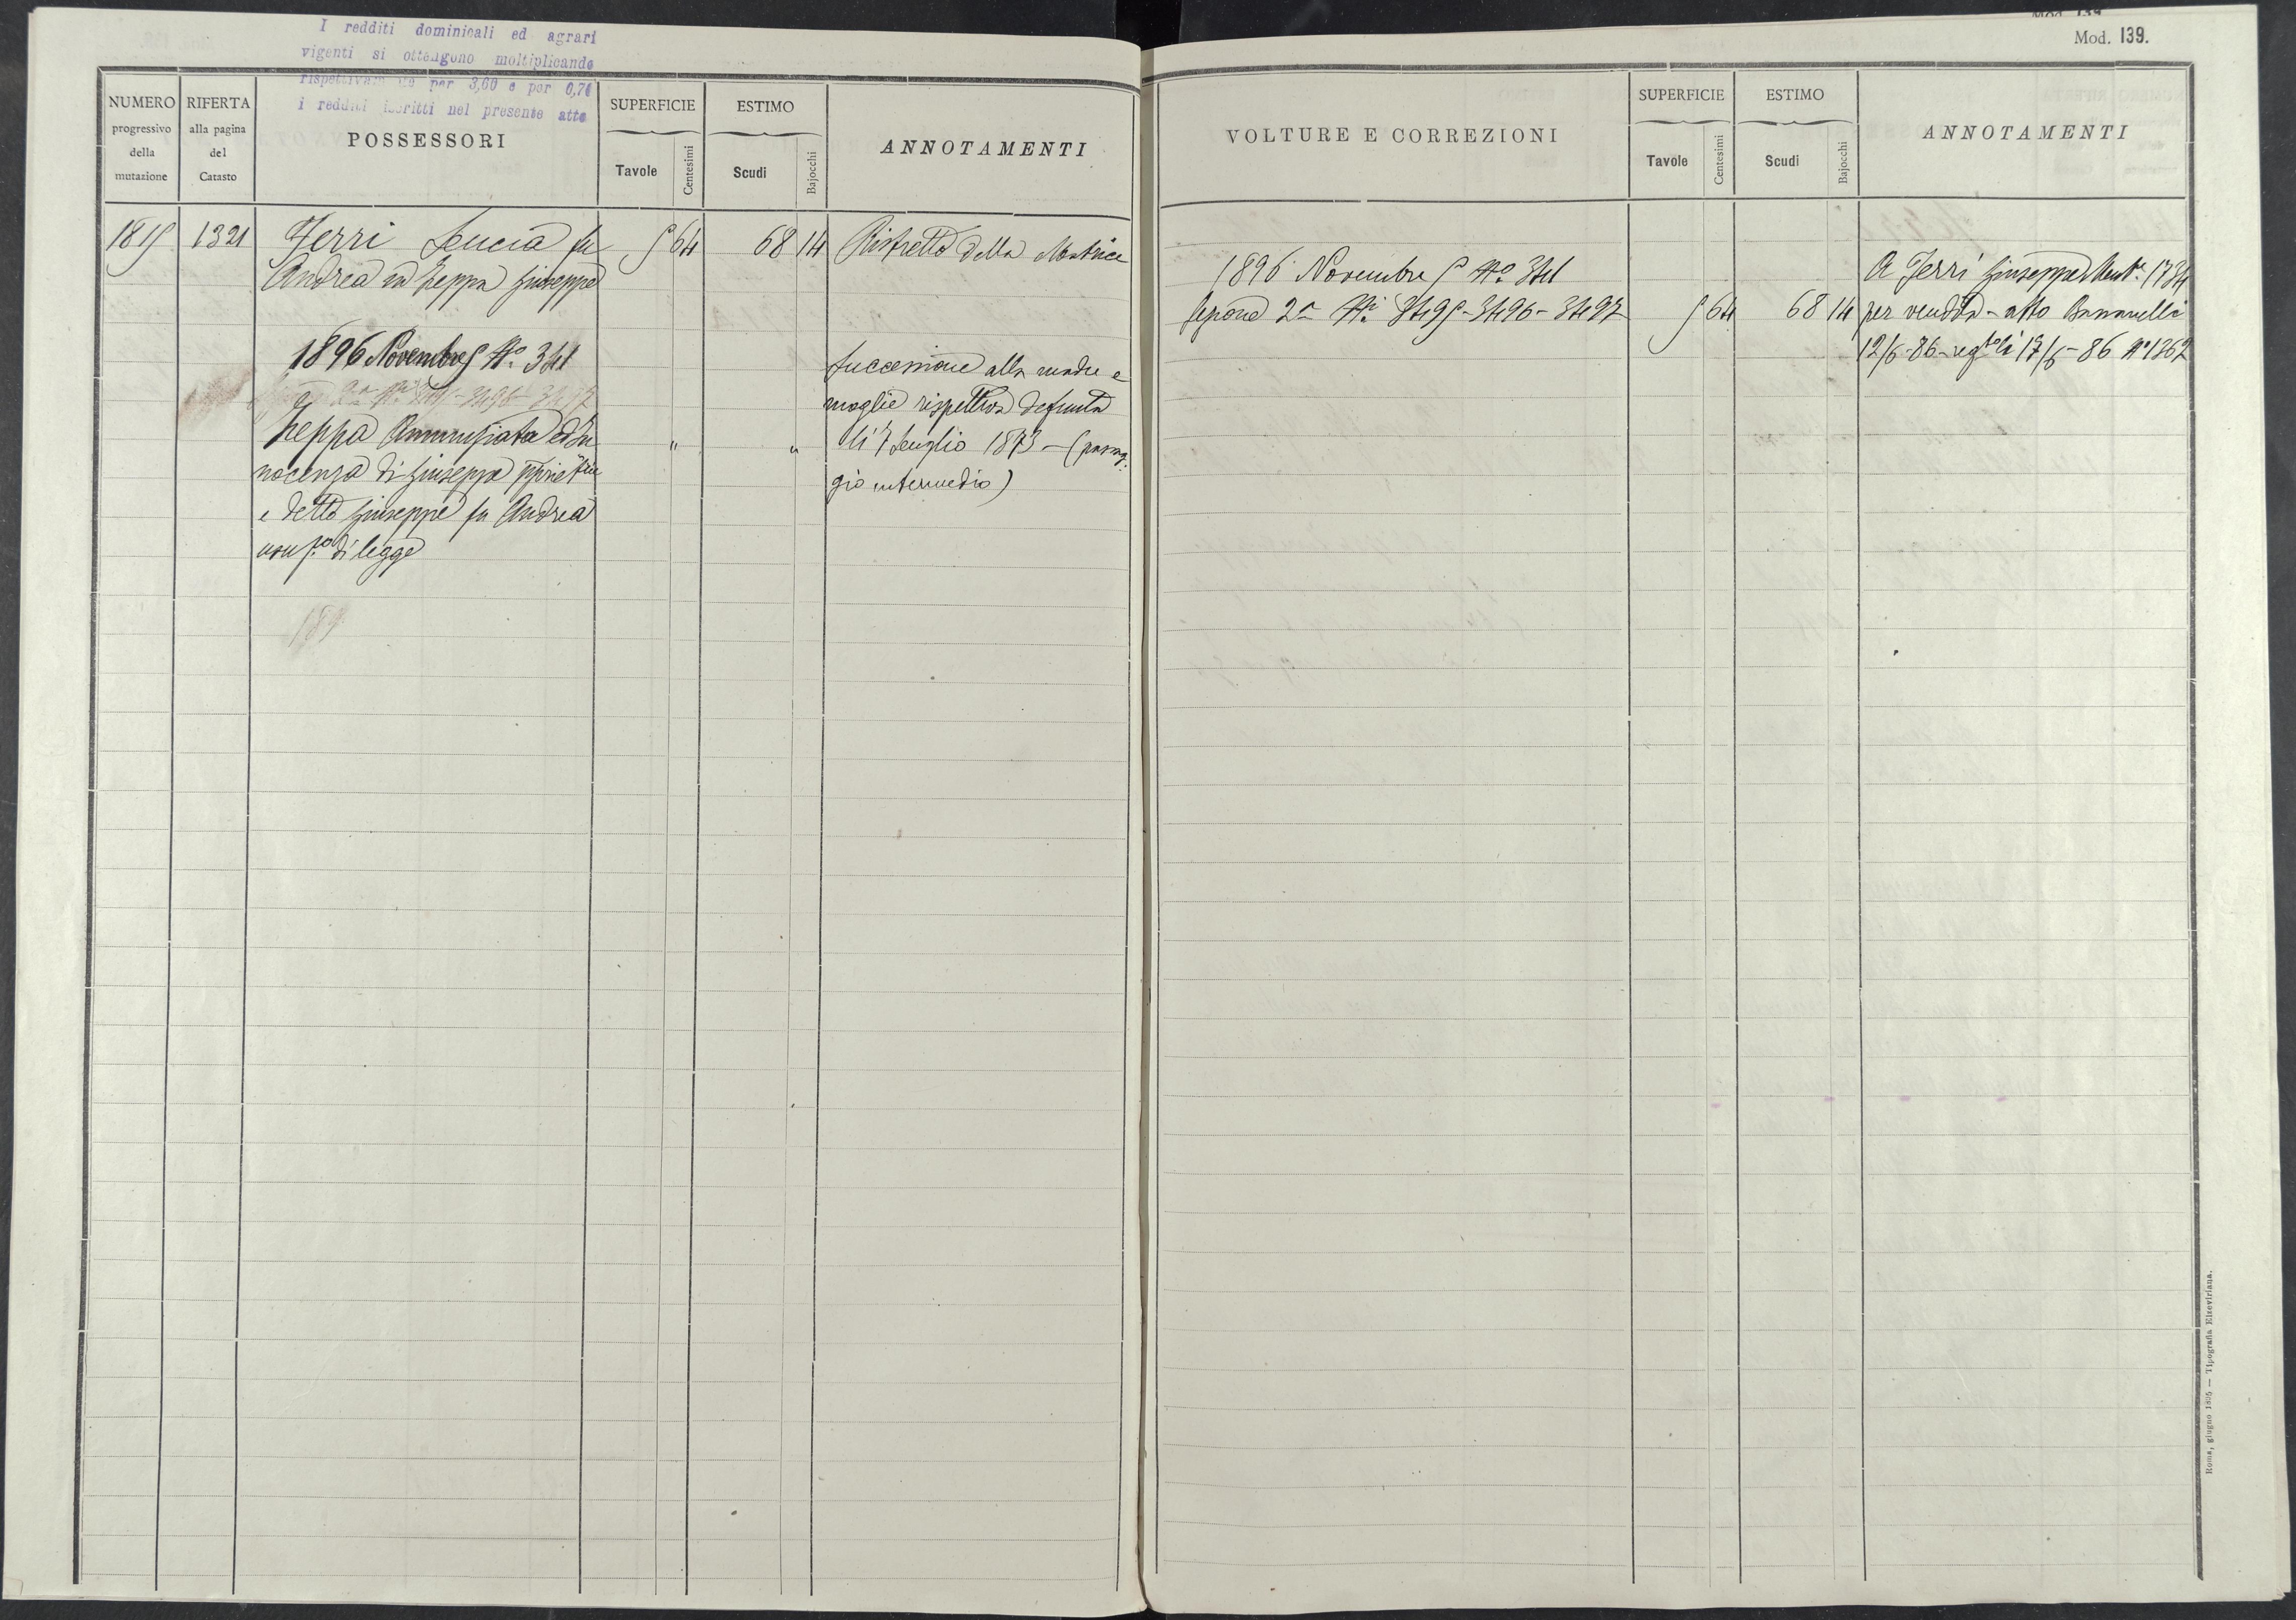 I redditi dominicali ed agrari
vigenti si ottengono moltiplicando
rispettivamente per 3,60 e per 0,70
i redditi iscritti nel presente atto
NUMERO
progressivo
della
mutazione
RIFERTA
alla pagina
del
Catasto
POSSESSORI
SUPERFICIE
Tavole
Centesimi
ESTIMO
Scudi
Bajocchi
ANNOTAMENTI
1815 1321 Ferri Lucia fu 5 64 68 14 Ristretto della Matrice
Andrea in Zeppa Giuseppe
1896 Novembre 5 Nº 341
Zeppa Annunziata ed In
nocenza di Giuseppe pprietrie
e detto Giuseppe fu Andrea
usufº di legge
" "
Successione alla madre e
moglie rispettiva defunta
li 7 Luglio 1873 - (passag:
gio intermedio)
189
Mod. 139.
VOLTURE E CORREZIONI
SUPERFICIE
Tavole
Centesimi
ESTIMO
Scudi
Bajocchi
ANNOTAMENTI
1896 Novembre 5 Nº 341
Sezione 2ª Ni 3495 - 3496 - 3497 5 64 68 14
A Ferri Giuseppe 1734
per vendita - atto
12/6-86 - regto li 17/6-86 Nº 1362
Roma, giugno 1895 — Tipografia Elzeviriana.